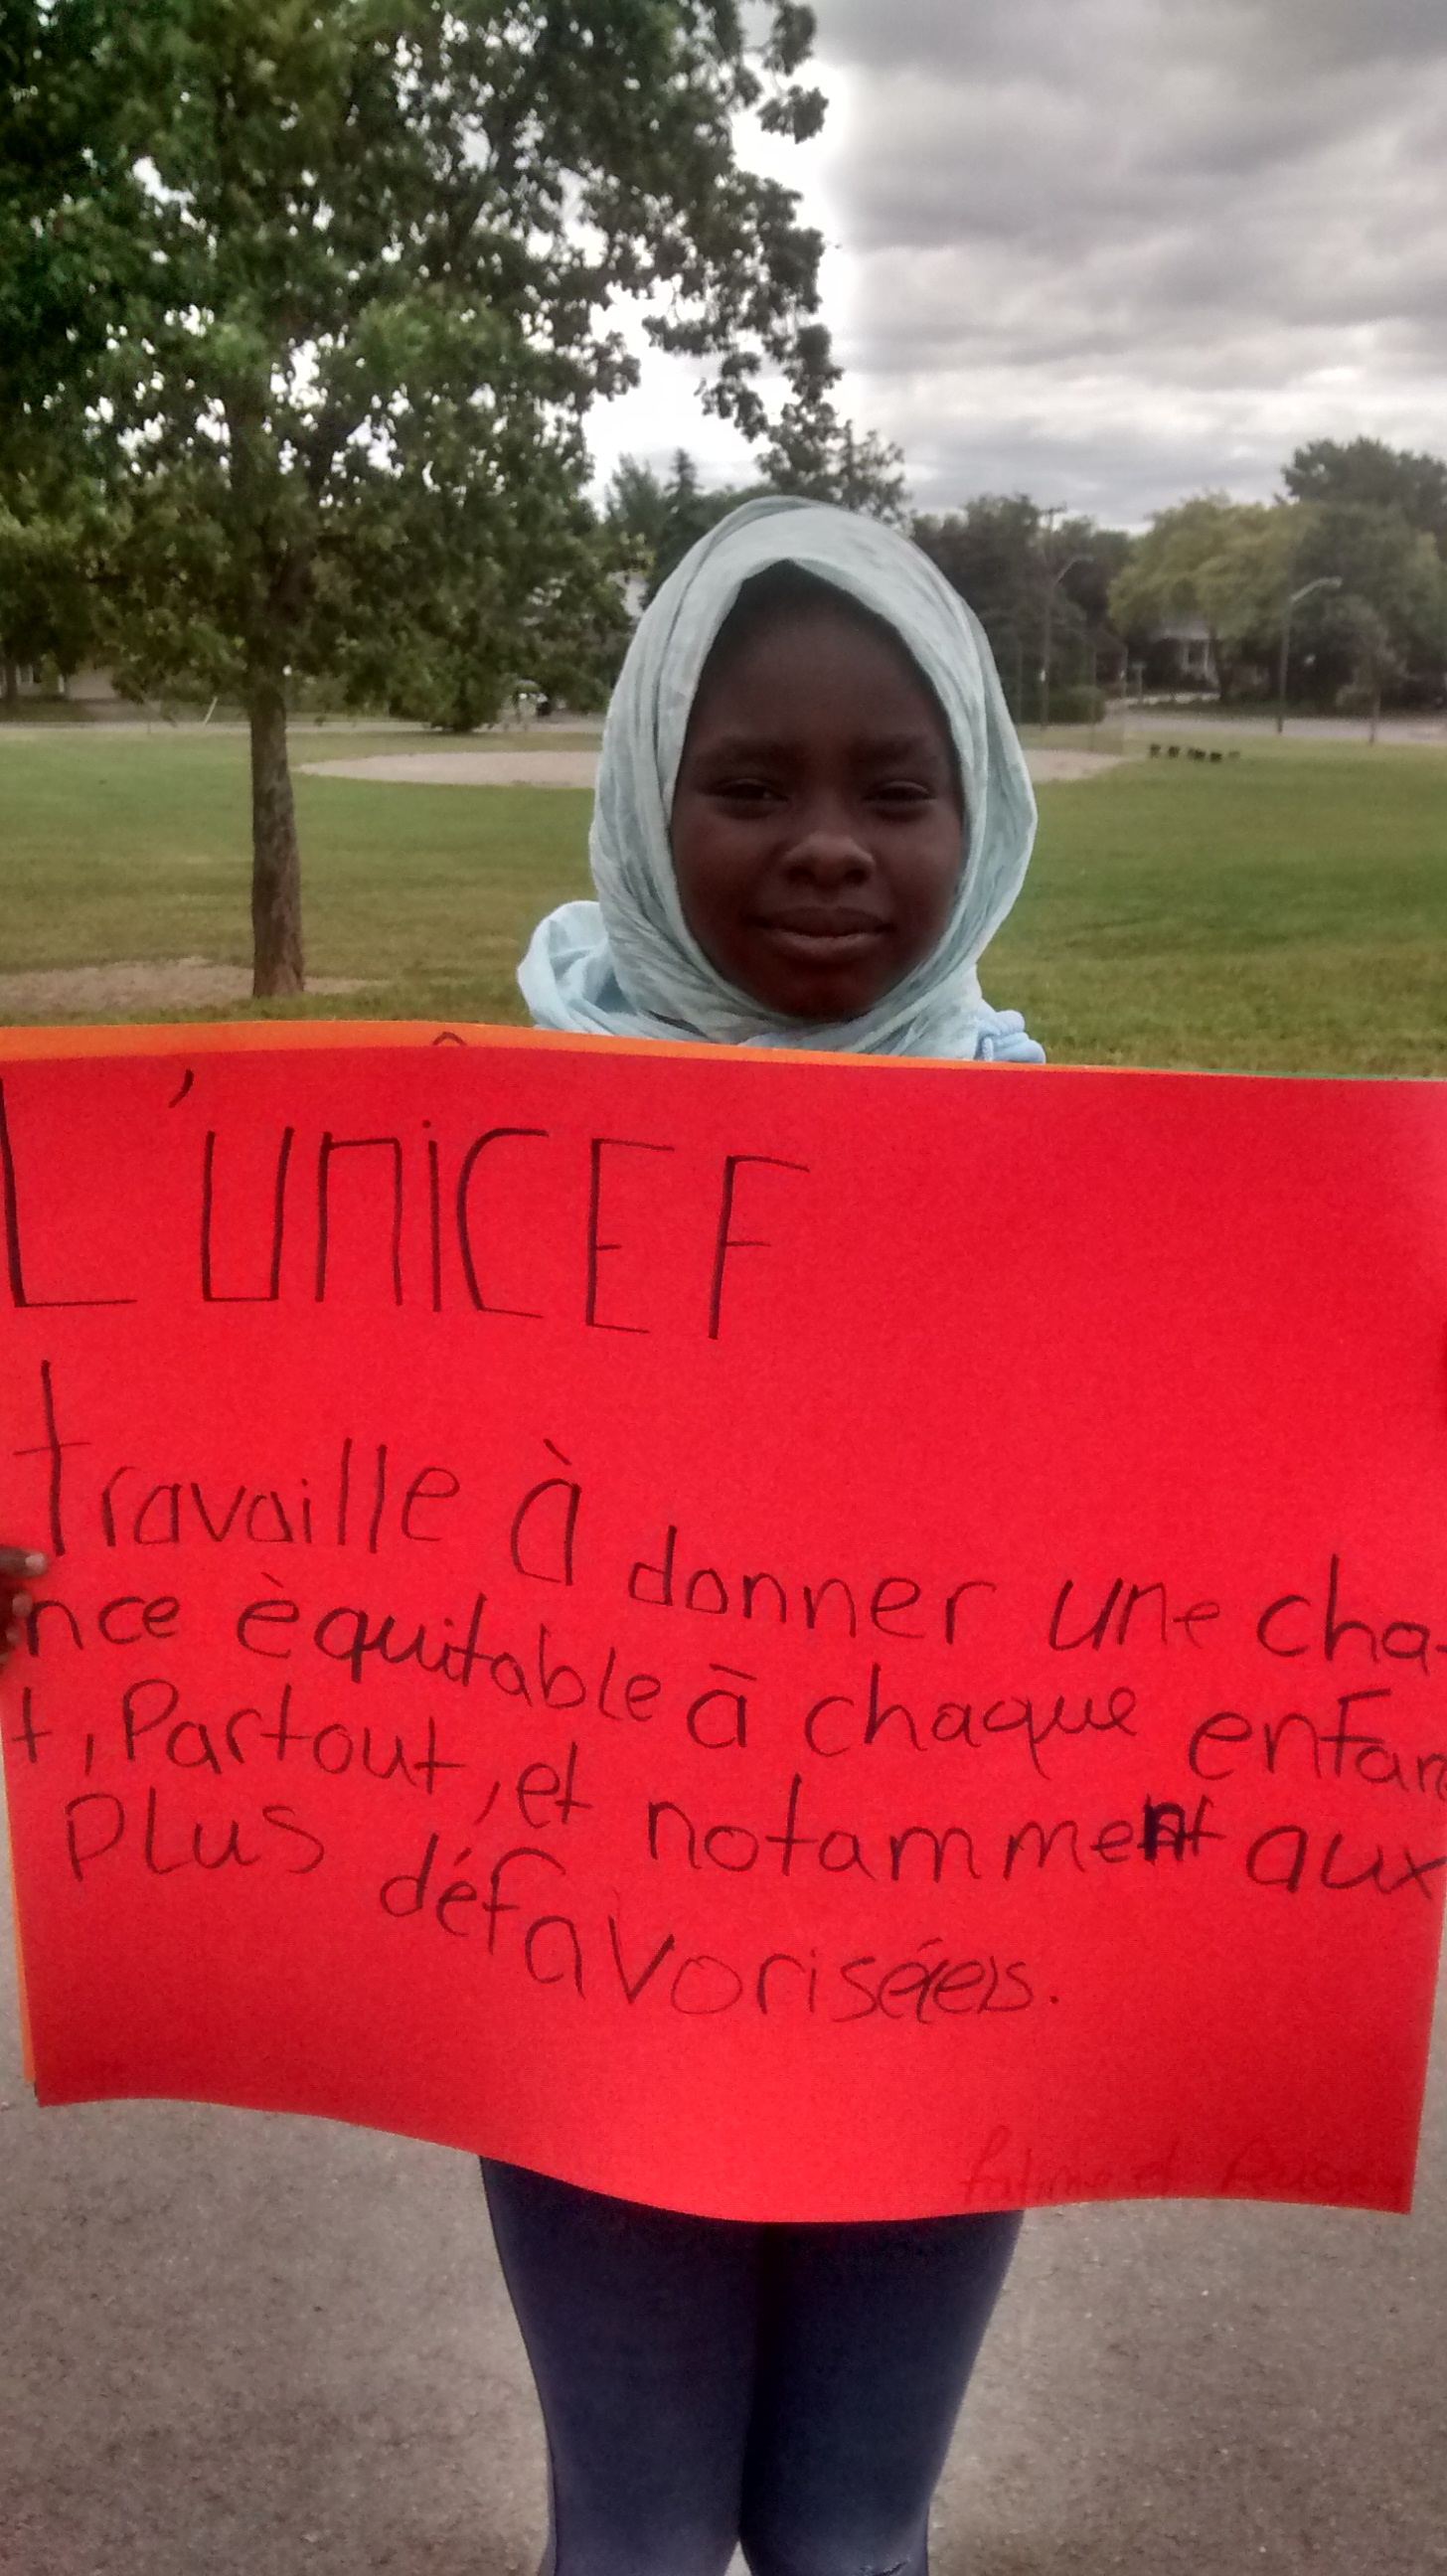 L'UNICEF
travaille à donner une cha-
nce èquitable à chaque enfan
t, Partout, et notamment aux
PLus défavorisées.